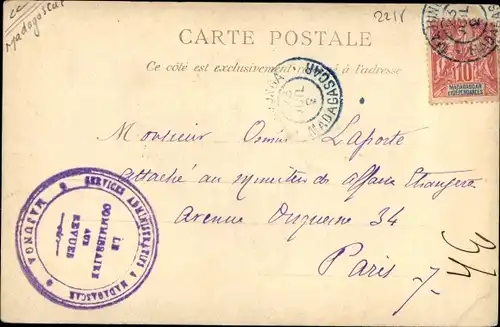 cc
Madagascar
2218
CARTE POSTALE
Ce côté est exclusivement à l'adresse
MADAGASCAR
10
MADAGASCAR
ET DÉPENDANCES
Monsieur Laporte
attaché au ministère des affaires Etrangères
Avenue Duquesne 34
Paris -7-
34
SERVICES ADMINISTRATIFS À MADAGASCAR
MAJUNGA
LE
COMMISSAIRE
AUX
REVUES